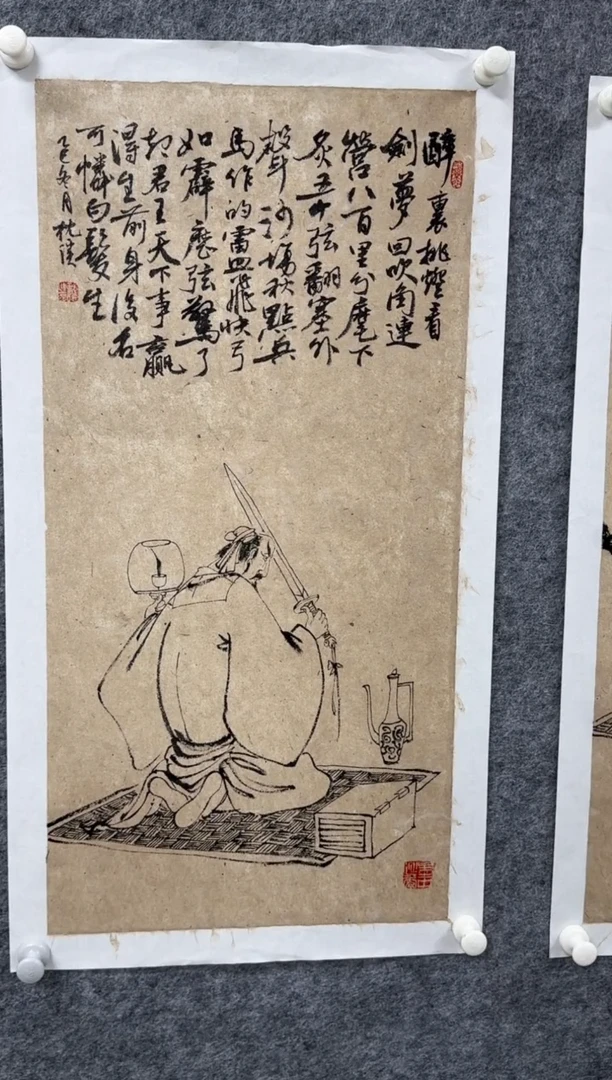 醉裏挑燈看
劍夢回吹角連
營八百里分麾下
炙五十弦翻塞外
聲沙場秋點兵
馬作的盧飛快弓
如霹靂弦驚了
却君王天下事贏
得生前身後名
可憐白髮生
乙巳冬月